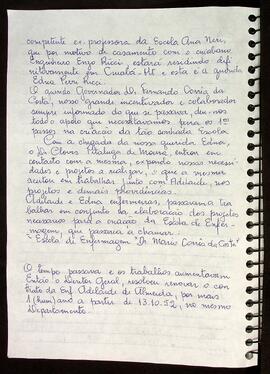 competente ex. professora da Escola Ana Neri,
que por motivo de casamento com o cuiabano
Engenheiro Enzo Ricci, estará residindo defi
nitivamente em Cuiabá-MT e esta é a querida
Edna Perri Ricci.
O querido Governador Dr. Fernando Corrêa da
Costa, nosso grande incentivador e colaborador
sempre informado do que se passava, deu-nos
todo o apoio que necessitávamos para os 1ºs
passos na criação da tão sonhada Escola.
Com a chegada da nossa querida Edna,
o Dr. Clovis Pitaluga de Moura, entrou em
contacto com a mesma, expondo nossas necessi
dades e projetos a realizar, o que a mesma
aceitou em trabalhar junto com Adelaide, nos
projetos e demais providências.
Adelaide e Edna enfermeiras, passaram a tra
balhar em conjunto na elaboração dos projetos
necessários para a criação da Escola de Enfer-
magem, que passaria a chamar:
"Escola de Enfermagem "Dr. Mário Corrêa da Costa"
O tempo passava e os trabalhos aumentavam
Então o Diretor Geral, resolveu renovar o con
trato da Enf. Adelaide de Almeida, por mais
1 (hum) ano a partir de 13.10.52, no mesmo
Departamento.